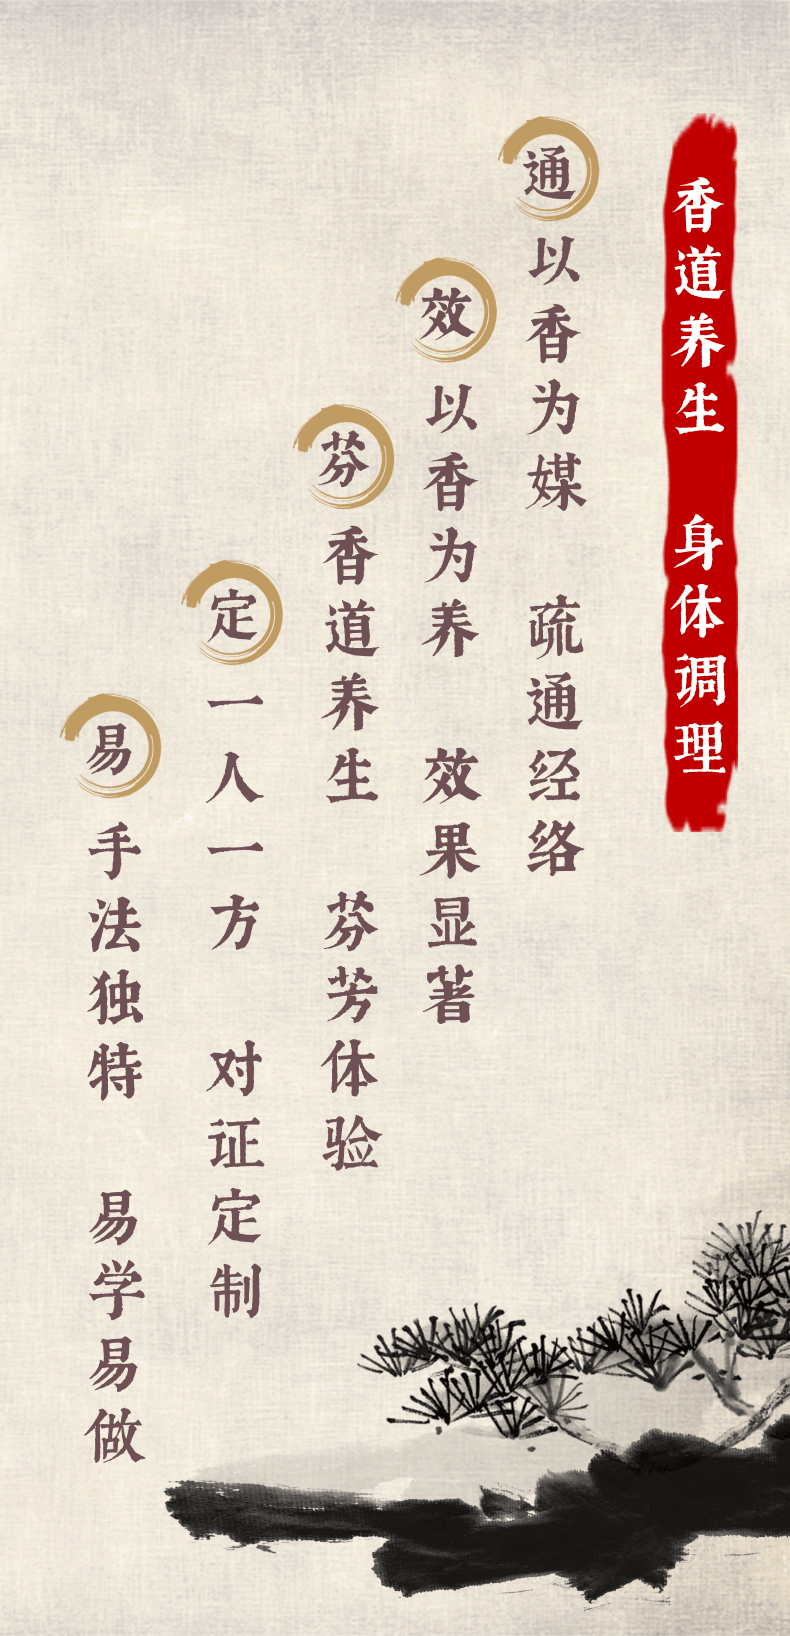 香道养生 身体调理
通 以香为媒 疏通经络
效 以香为养 效果显著
芬 香道养生 芬芳体验
定 一人一方 对证定制
易 手法独特 易学易做